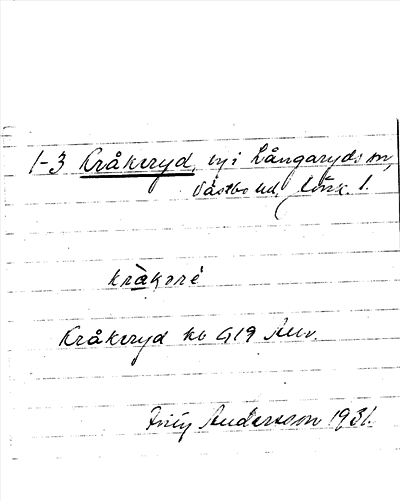 1-3 Kråkeryd, by i Långaryds sn,
Västbo hd, Jönk. l.
kràkəré
Kråkeryd kb G19 Auv.
Andersson 1931.